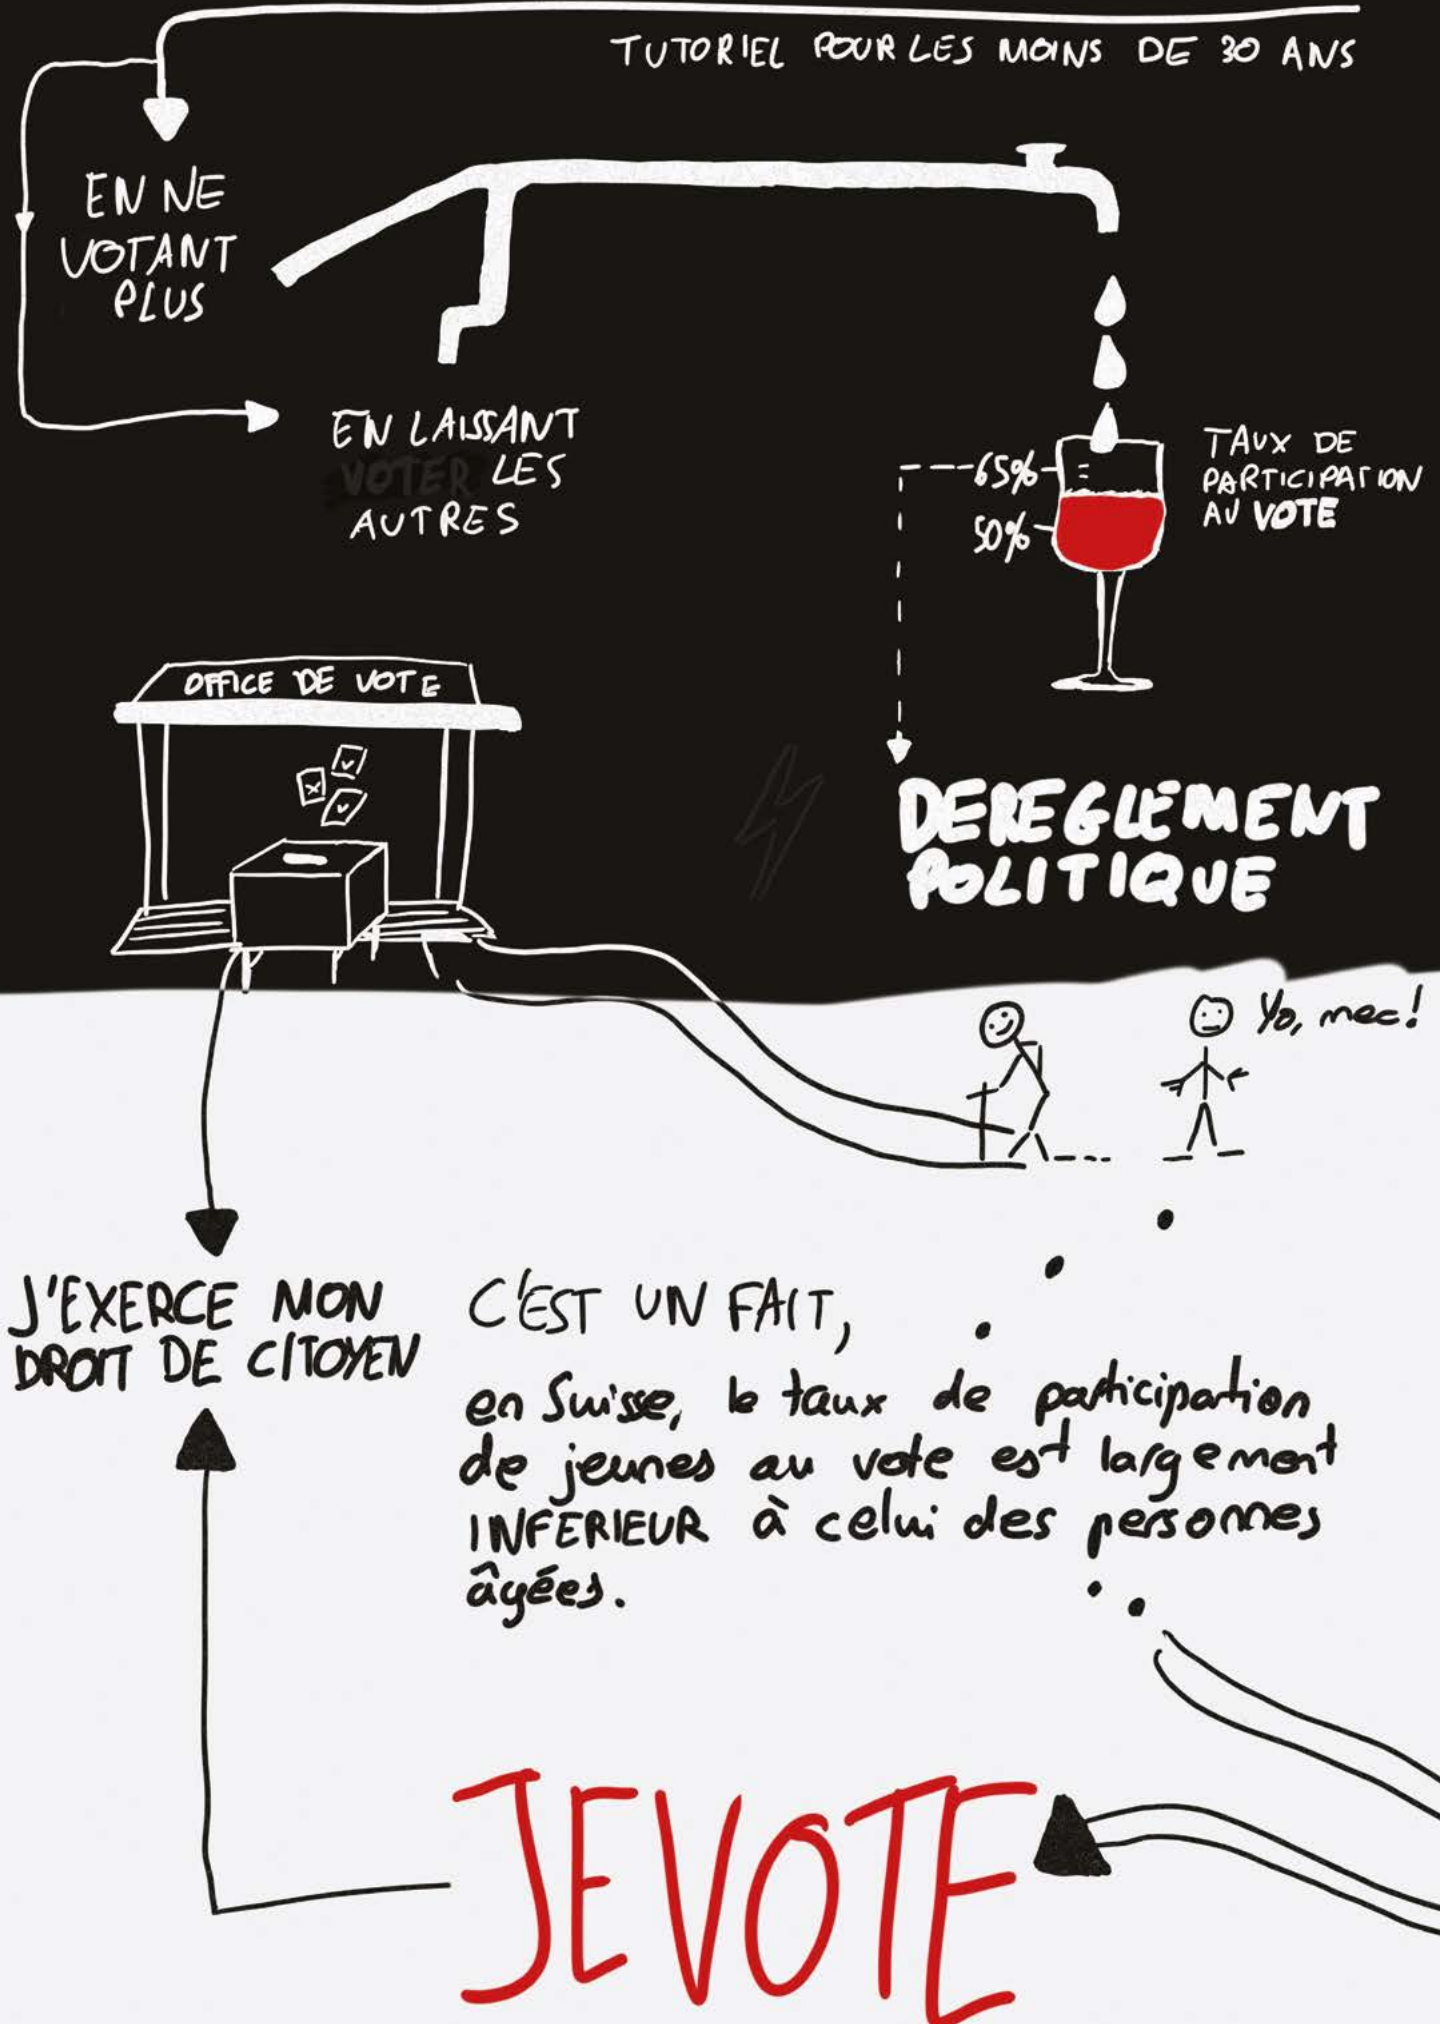 TUTORIEL POUR LES MOINS DE 30 ANS
EN NE
VOTANT
PLUS
EN LAISSANT
VOTER LES
AUTRES
65%
50%
TAUX DE
PARTICIPATION
AU VOTE
OFFICE DE VOTE
DEREGLEMENT
POLITIQUE
Yo, mec!
J'EXERCE MON
DROIT DE CITOYEN
C'EST UN FAIT,
en Suisse, le taux de participation
de jeunes au vote est largement
INFERIEUR à celui des personnes
âgées.
JEVOTE